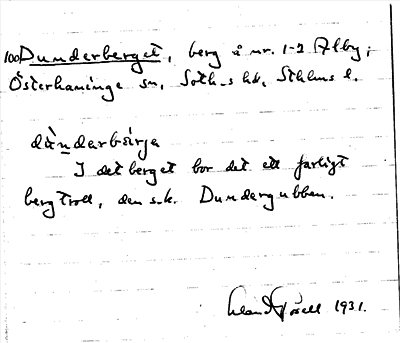 100 Dunderberget, berg å nr. 1-2 Alby,
Österhaninge sn, Soth-s hd, Sthlms l.
dùnderbærje
I det berget bor det ett farligt
bergtroll, den s.k. Dundergubben.
1931.